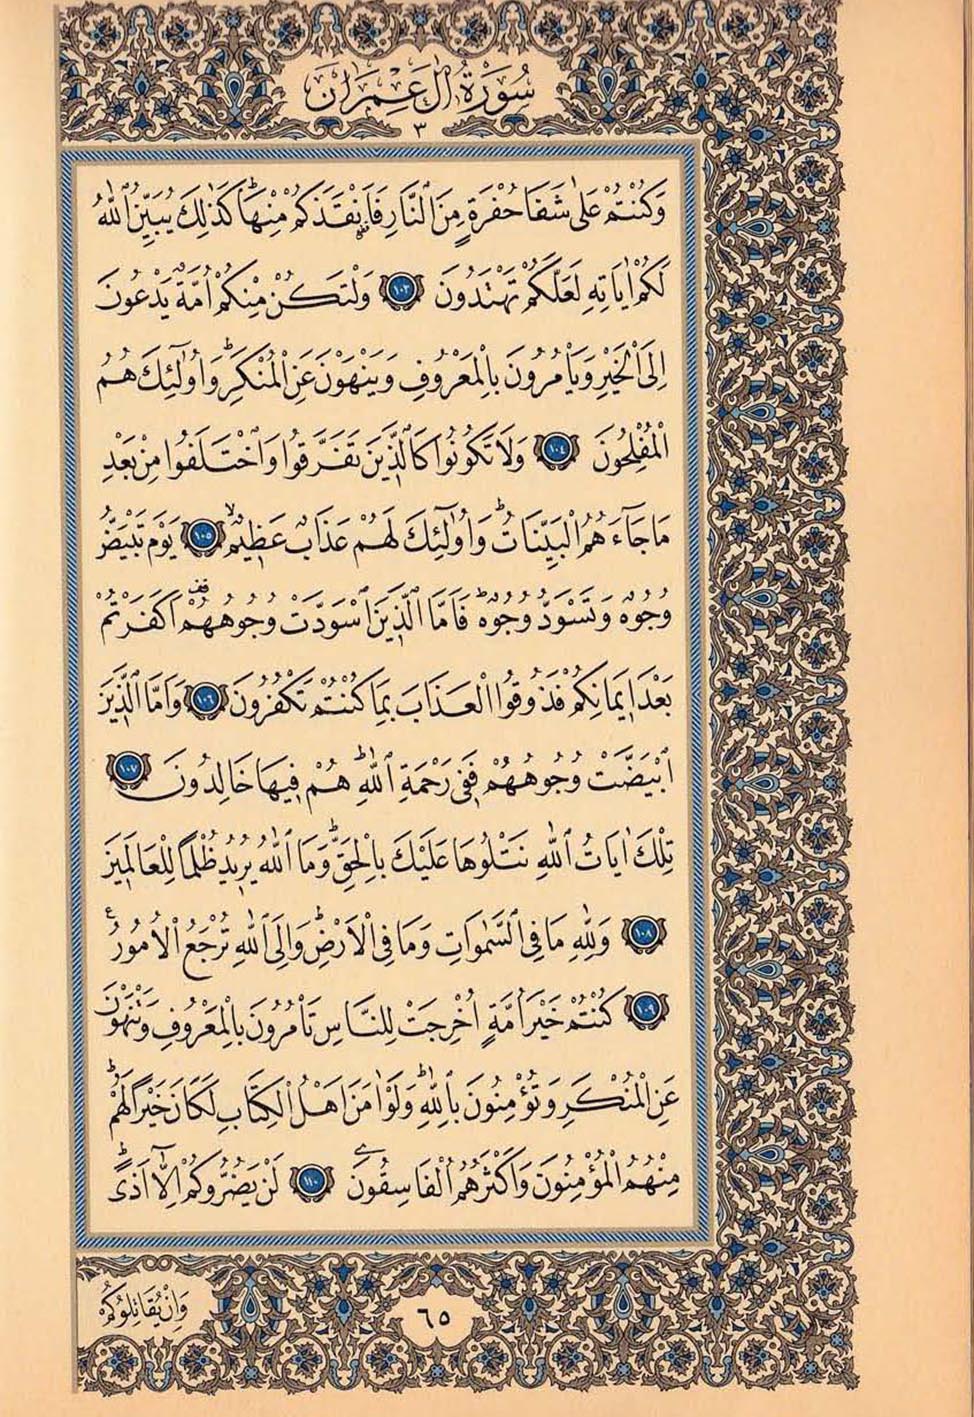 سُورَةُ اٰلِ عِمْرَانَ
٣
وَكُنْتُمْ عَلٰى شَفَا حُفْرَةٍ مِنَ النَّارِ فَاَنْقَذَكُمْ مِنْهَاؕ كَذٰلِكَ يُبَيِّنُ اللّٰهُ
لَكُمْ اٰيَاتِهِ لَعَلَّكُمْ تَهْتَدُونَ ١٠٣ وَلْتَكُنْ مِنْكُمْ اُمَّةٌ يَدْعُونَ
اِلَى الْخَيْرِ وَيَأْمُرُونَ بِالْمَعْرُوفِ وَيَنْهَوْنَ عَنِ الْمُنْكَرِؕ وَاُولٰٓئِكَ هُمُ
الْمُفْلِحُونَ ١٠٤ وَلَا تَكُونُوا كَالَّذِينَ تَفَرَّقُوا وَاخْتَلَفُوا مِنْ بَعْدِ
مَا جَٓاءَهُمُ الْبَيِّنَاتُؕ وَاُولٰٓئِكَ لَهُمْ عَذَابٌ عَظِيمٌۙ ١٠٥ يَوْمَ تَبْيَضُّ
وُجُوهٌ وَتَسْوَدُّ وُجُوهٌؕ فَاَمَّا الَّذِينَ اسْوَدَّتْ وُجُوهُهُمْ اَكَفَرْتُمْ
بَعْدَ اِيمَانِكُمْ فَذُوقُوا الْعَذَابَ بِمَا كُنْتُمْ تَكْفُرُونَ ١٠٦ وَاَمَّا الَّذِينَ
ابْيَضَّتْ وُجُوهُهُمْ فَفِي رَحْمَةِ اللّٰهِؕ هُمْ فِيهَا خَالِدُونَ ١٠٧
تِلْكَ اٰيَاتُ اللّٰهِ نَتْلُوهَا عَلَيْكَ بِالْحَقِّؕ وَمَا اللّٰهُ يُرِيدُ ظُلْمًا لِلْعَالَمِينَ
١٠٨ وَلِلّٰهِ مَا فِي السَّمٰوَاتِ وَمَا فِي الْاَرْضِؕ وَاِلَى اللّٰهِ تُرْجَعُ الْاُمُورُ ع
١٠٩ كُنْتُمْ خَيْرَ اُمَّةٍ اُخْرِجَتْ لِلنَّاسِ تَأْمُرُونَ بِالْمَعْرُوفِ وَتَنْهَوْنَ
عَنِ الْمُنْكَرِ وَتُؤْمِنُونَ بِاللّٰهِؕ وَلَوْ اٰمَنَ اَهْلُ الْكِتَابِ لَكَانَ خَيْرًا لَهُمْؕ
مِنْهُمُ الْمُؤْمِنُونَ وَاَكْثَرُهُمُ الْفَاسِقُونَ ١١٠ لَنْ يَضُرُّوكُمْ اِلَّٓا اَذًىؕ
٦٥
وَاِنْ يُقَاتِلُوكُمْ